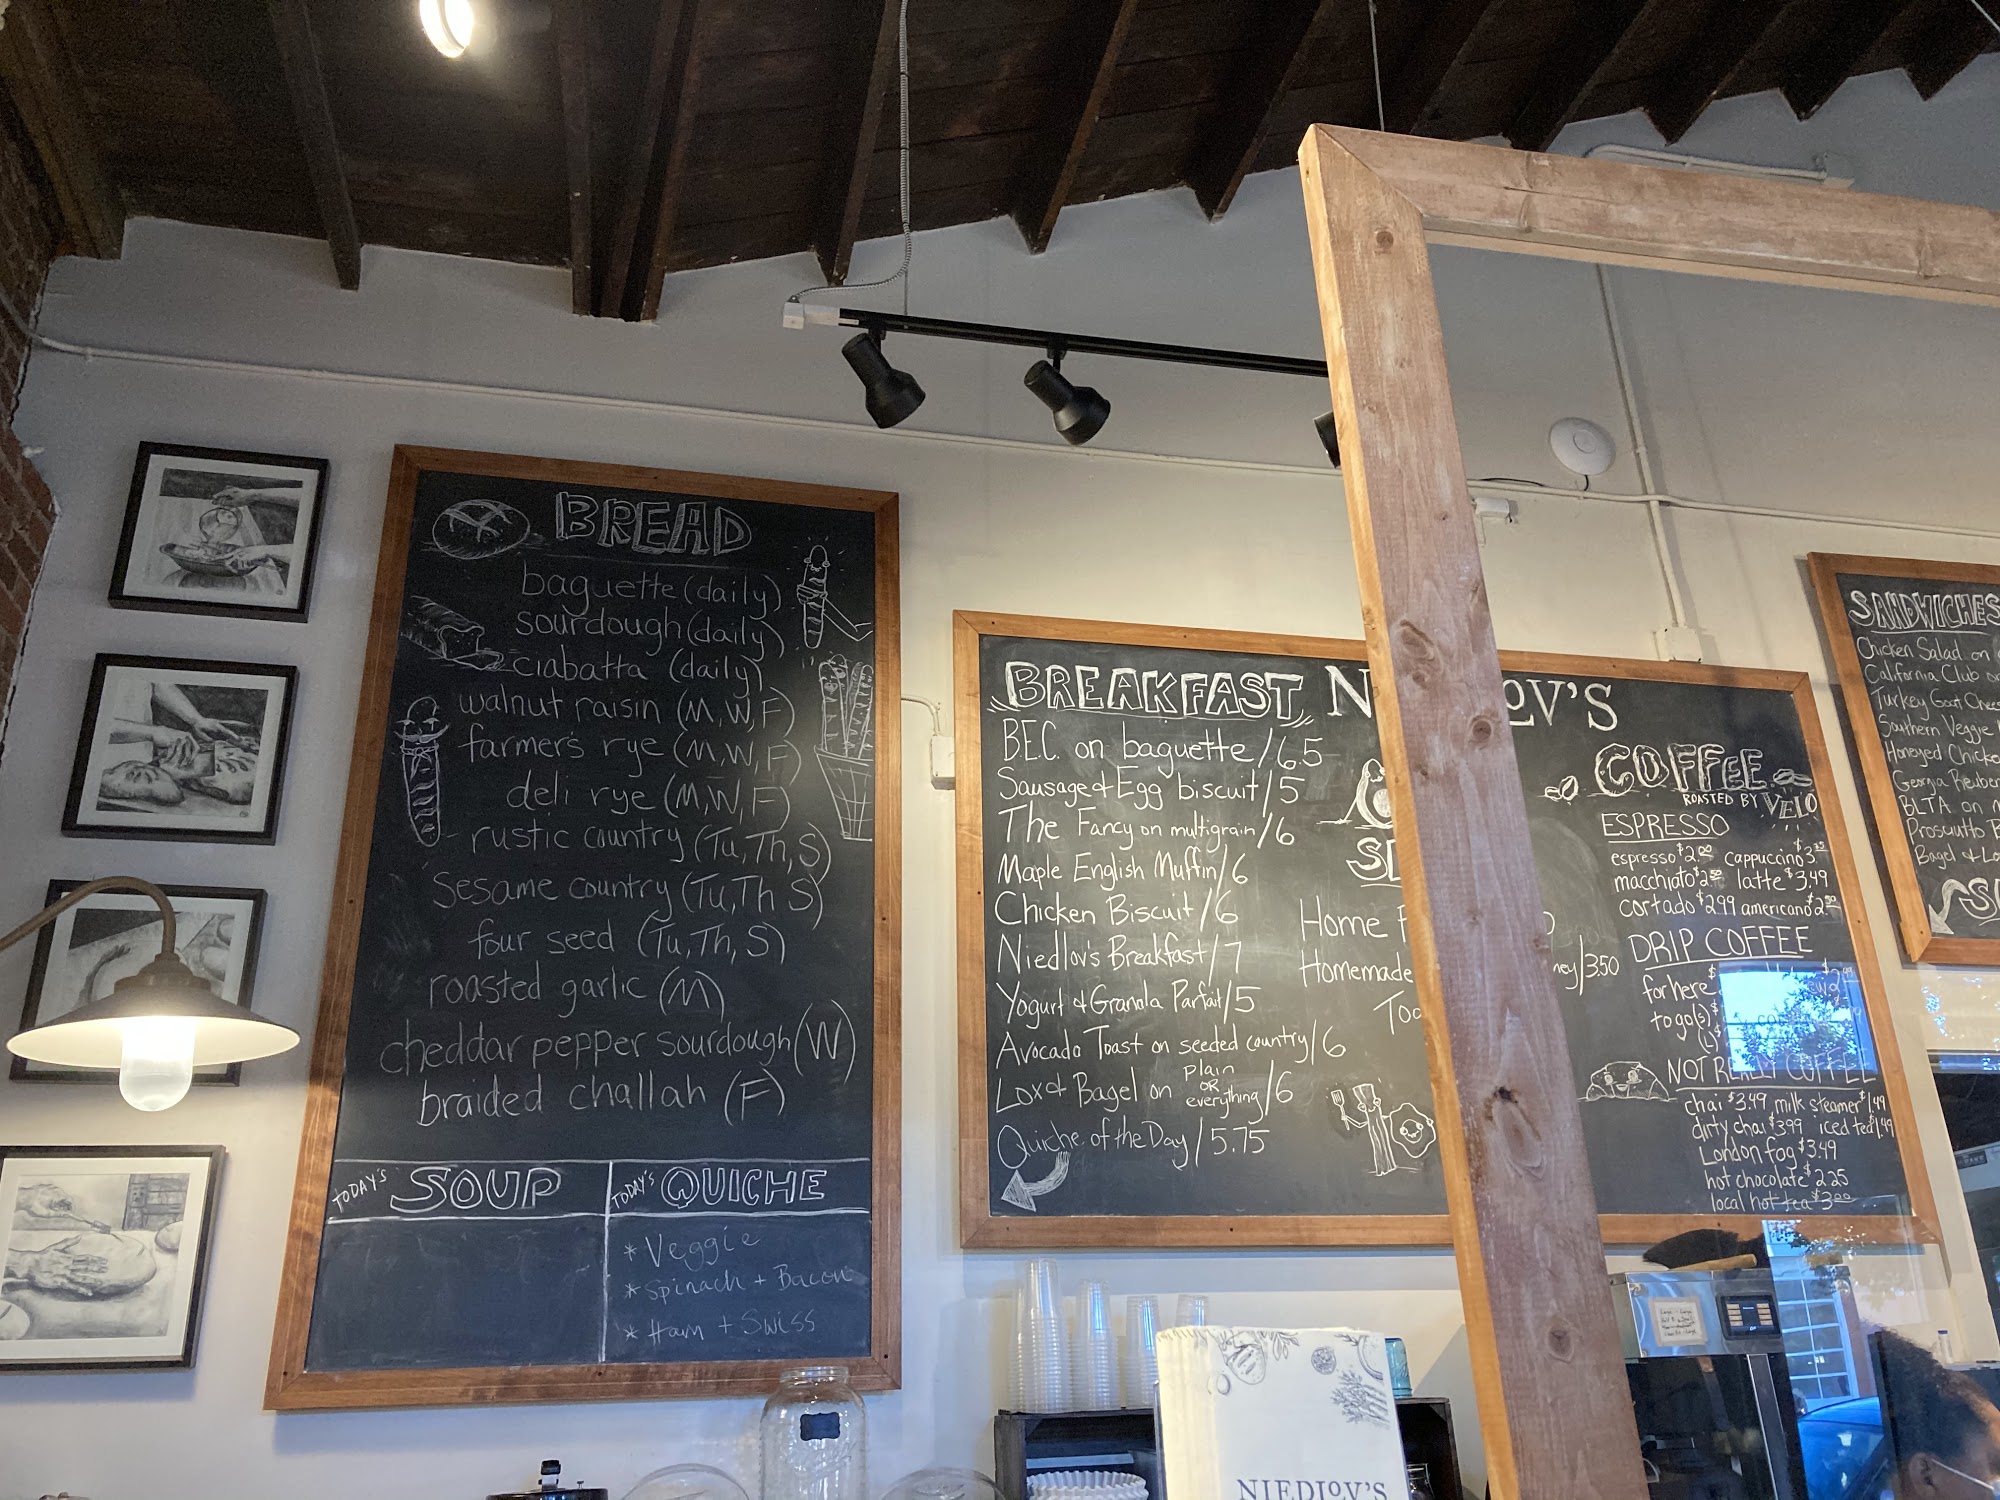 BREAD
baguette (daily)
sourdough (daily)
ciabatta (daily)
walnut raisin (M, W, F)
farmer's rye (M, W, F)
deli rye (M, W, F)
rustic country (Tu, Th, S)
Sesame country (Tu, Th S)
four seed (Tu, Th, S)
roasted garlic (M)
cheddar pepper sourdough (W)
braided challah (F)
TODAY'S SOUP
TODAY'S QUICHE
* Veggie
* Spinach + Bacon
* Ham + Swiss
BREAKFAST
B.E.C. on baguette / 6.5
Sausage & Egg biscuit / 5
The Fancy on multigrain / 6
Maple English Muffin / 6
Chicken Biscuit / 6
Niedlov's Breakfast / 7
Yogurt & Granola Parfait / 5
Avocado Toast on seeded country / 6
Lox & Bagel on plain OR everything / 6
Quiche of the Day / 5.75
LOV'S
Home
Homemade /3.50
COFFEE
ROASTED BY VELO
ESPRESSO
espresso $2.00 cappuccino
macchiato latte $3.49
cortado $2.99 americano
DRIP COFFEE
for here
to go (S)
(L)
NOT REALLY COFFEE
chai $3.49 milk steamer $1.49
dirty chai $3.99 iced tea $1.49
London fog $3.49
hot chocolate $2.25
local hot tea $3.00
SANDWICHES
Chicken Salad on
California Club
Turkey Goat
Southern Veggie
Honeyed
Georgia Reuben
BLTA on
Prosciutto
Bagel &
NIEDLOV'S